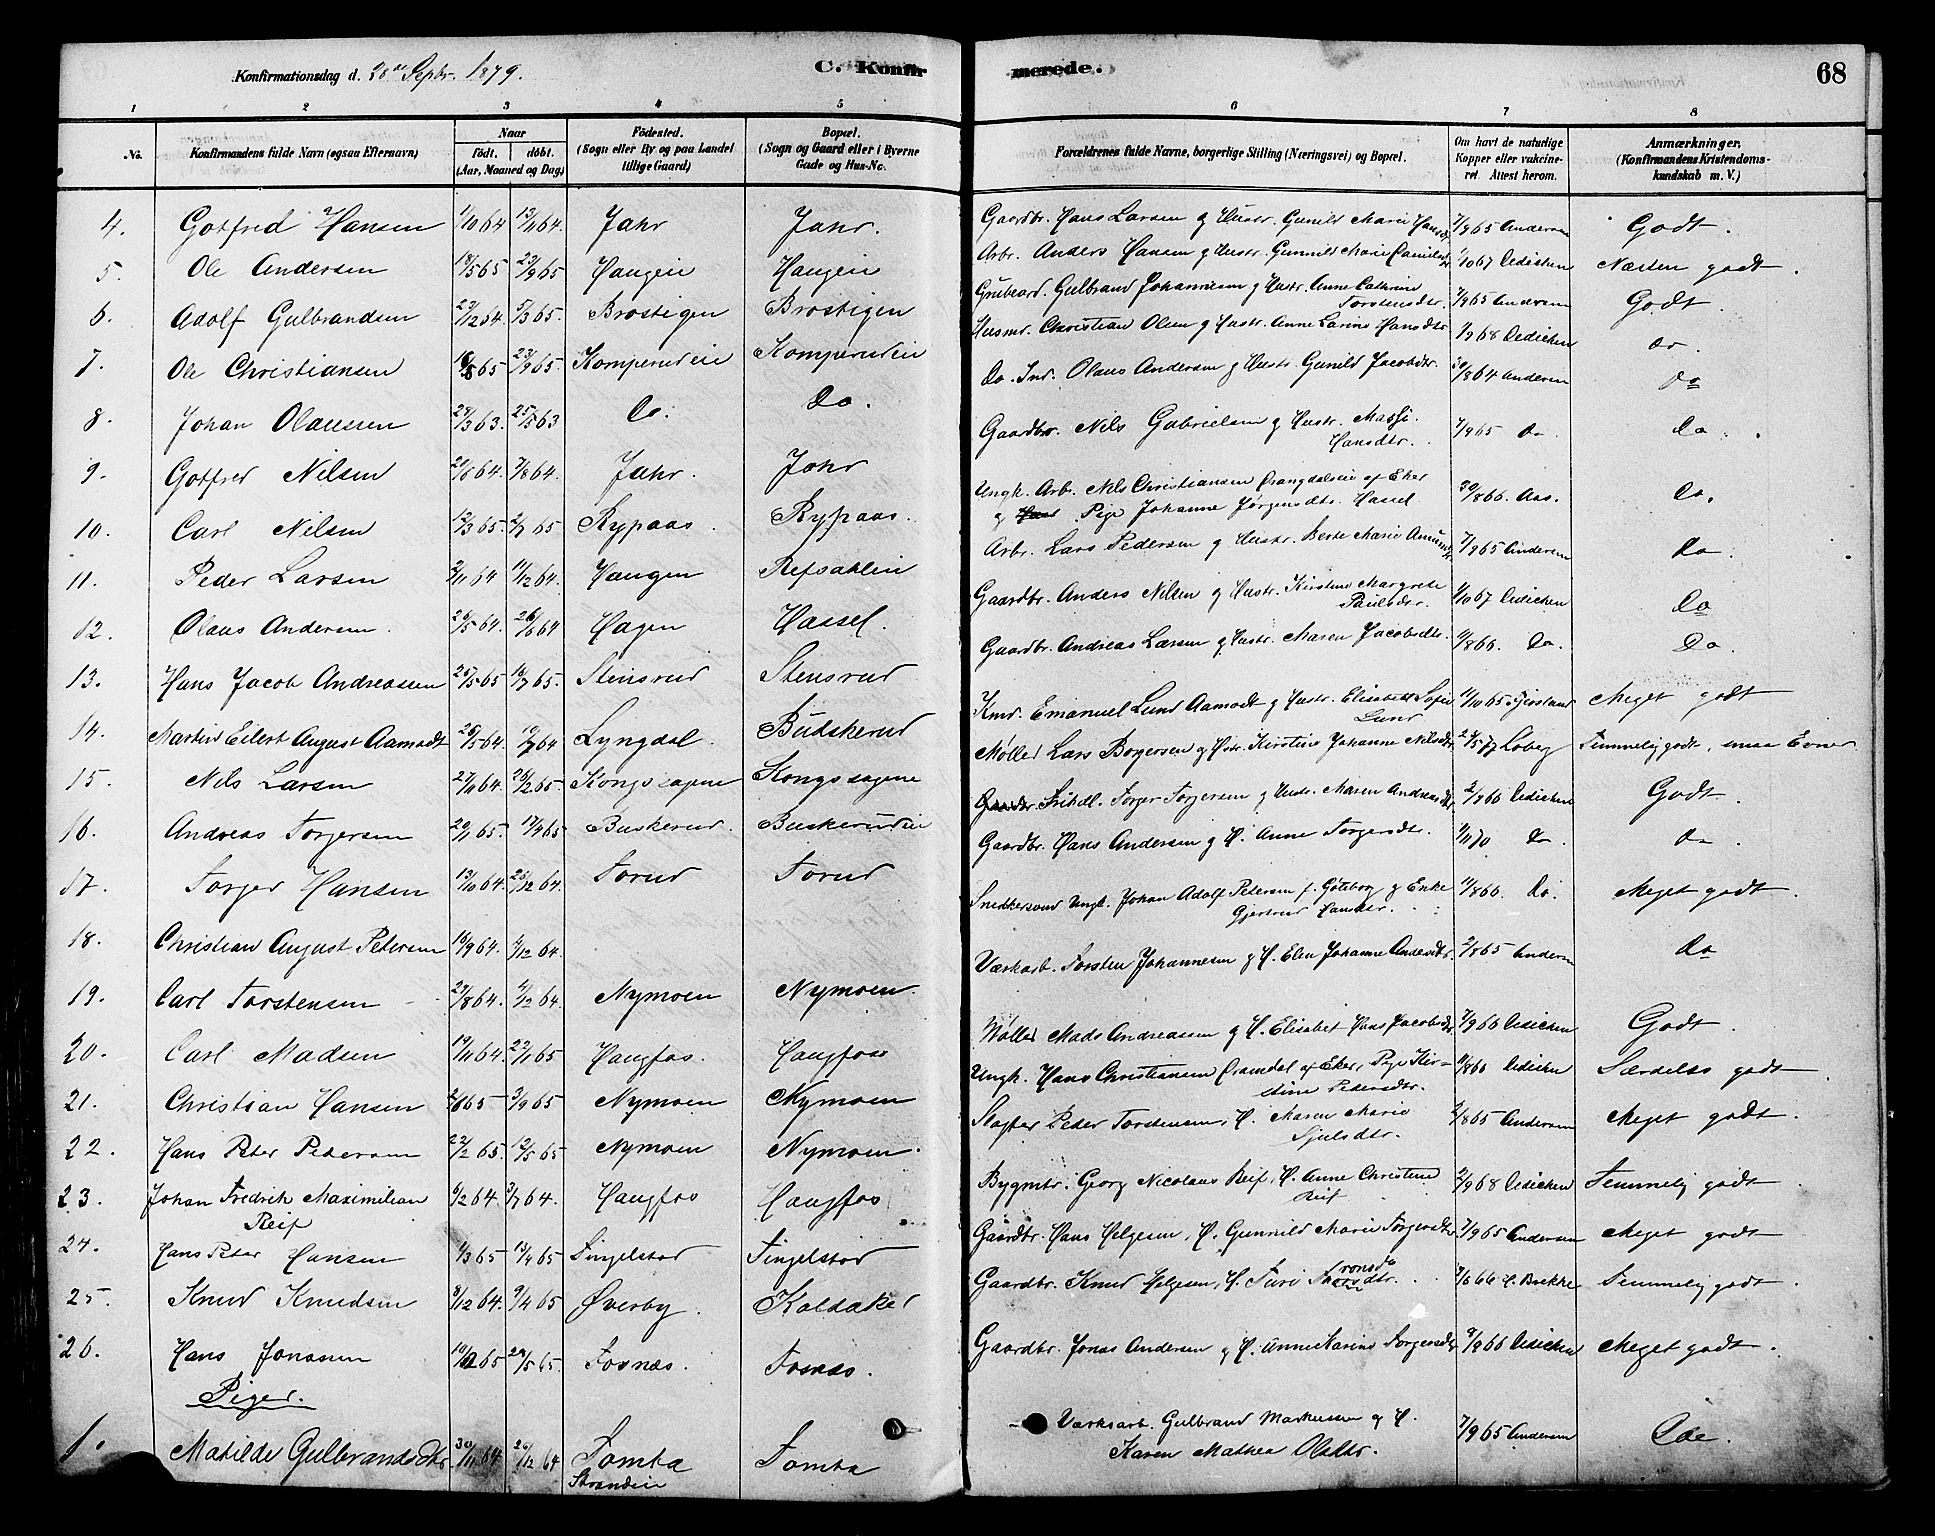 Konfirmationsdag d. 28de Septbr. 1879.
C. Konfirmerede.
68
1 2 3 4 5 6 7 8
No.
Konfirmandens fulde Navn (ogsaa Efternavn)
Naar
födt. döbt.
(Aar, Maaned og Dag)
Födested.
(Sogn eller By og paa Landet
tillige Gaard)
Bopæl.
(Sogn og Gaard eller i Byerne
Gade og Hus-No.
Forældrenes fulde Navne, borgerlige Stilling (Næringsvei) og Bopæl.
Om havt de naturlige
Kopper eller vakcine-
ret. Attest herom.
Anmærkninger.
(Konfirmandens Kristendoms-
kundskab m. V.)
4. Gotfred Hansen 1/10 64 13/11 64. Jahr Jahr. Gaardbr. Hans Larsen og Hustr. Gunild Marie Hansdtr 7/9 65 Andersen Godt.
5. Ole Andersen 18/5 65 23/9 65 Haugeie Haugeie Arbr. Anders Hansen og Hustr. Gunnild Marie 1/10 67 Didichen Næsten godt.
6. Adolf Gulbrandsen 5/3 65. Brostigen Brostigen Grubearb. Gulbrand Johannesen og Hustr. Anne Cathrine
Torstensdtr. 7/9 65 Andersen Godt.
7. Ole Christiansen 23/9 65. Komperudeie Komperudeie Husmd. Christian Olsen og Hustr. Anne Larine Hansdtr 1/9 68 Didichen do.
8. Johan Olaussen 25/5 63 Do. Do. Do. Ind. Olaus Andersen og Hustr. Gunild Jacobsdtr. 30/8 64 Andersen do
9. Gotfred Nilsen 7/8 64. Jahr. Jahr Gaardbr. Nils Gabrielsen og Hustr.
Hansdtr. 7/9 65 do do.
10. Carl Nilsen 12/3 65. 2/7 65 Rypaas. Rypaas. Ungk. Arb. Nils Christiansen af Eker
og Pige Johanne Jørgensdtr. Hassel 30/8 66. Aas. Do.
11. Peder Larsen 2/11 64 11/12 64. Haugen Refsahlen Arbr. Lars Pedersen og Hustr. Berte Marie 7/9 65 Andersen Do.
12. Olaus Andersen. 26/5 64. 26/6 64 Hagen Hassel. Gaardbr. Anders Nilsen og Hustr. Kirstine Margrete
Paulsdtr. 1/10 67 Didichen Do
13. Hans Jacob Andreassen 25/5 65 16/7 65. Stensrud Stensrud Gaardbr. Andreas Larsen og Hustr. Maren Jacobsdtr. 11/8 66. Do. Do.
14. Martin Eilert August Aamodt 26/5 64. Lyngdal. Buskerud Kmd. Emanuel Lund Aamodt og Hustr. Elisabeth Sofie
Lund 11/10 65 Meget godt
15. Nils Larsen 27/11 64. 26/2 65. Kongssagene Kongssagene Møller Lars Borgersen og Hstr. Kirstine Johanne Nilsdtr. 24/5 77 Loberg Temmelig godt, smaa Evner
16. Andreas Torgersen 20/1 65. 17/4 65. Buskerud. Buskerudeie Torger Torgersen og Hustr. Maren Andreasdtr 2/8 66 Didichen Godt.
17. Torger Hansen 13/10 64. 26/12 64. Torud Torud Gaardbr. Hans Andersen og H. Anne Torgersdtr. 1/11 70 do. do.
18. Christian August Petersen 16/9 64. 4/12 64. Snedkersvend Ungk. Johan Adolf Petersen f. Gøteborg og Enke
Gjertrud Hansdtr. 11/8 66. Do. Meget godt.
19. Carl Torstensen 27/8 64. 4/12 64. Nymoen Nymoen. Værkarb. Torsten Johannesen og H. Elen Johanne Andersdtr. 2/8 65 Andersen Do
20. Carl Madsen 19/11 64. 22/1 65 Haugfos. Haugfos Møller Mads Andreassen og H. Elisabet Hans Jacobsdtr 7/9 66 Didichen Godt.
21. Christian Hansen 3/9 65 Nymoen Nymoen Ungk. Hans Christiansen af Eker, Pige Kir-
stine Pedersdtr. 11/8 66 Didichen Særdeles godt.
22. Hans Peter Pedersen 22/2 65. 12/5 65 Nymoen Nymoen. Slagter Peder Torstensen, H. Maren Marie
Sjulsdtr. 2/8 65 Andersen Meget godt.
23. Johan Fredrik Maximilian
Reif 6/2 64. 3/7 64. Haugfos Haugfos Bygmtr. Georg Nicolaus Reif, H. Anne Christine
Reif 2/9 68 Didichen Temmelig godt.
24. Hans Peter Hansen 1/3 65 17/4 65 Tingelstad Tingelstad Gaardbr. Hans Helgesen, H. Gunnild Marie Torgersdtr 7/9 65 Andersen Meget godt
25. Knud Knudsen 8/12 64. 9/4 65 Øverby. Koldaker Gaardbr. Knud Helgesen, H. Turi 7/6 66 C. Brekke Temmelig godt.
26. Hans Jonassen 24/5 65. Fosnæs. Fosnæs. Gaardbr. Jonas Andersen og H. Anne Karine Torgersdtr 9/9 66 Didichen Meget godt.
Piger.
1. Matilde Gulbrandsdtr. 30/11 64 26/12 64 Tomba
Strandeie Tomba Værksarb. Gulbrand Markussen og H.
Karen Mathea Olsdtr. 7/9 65 Andersen